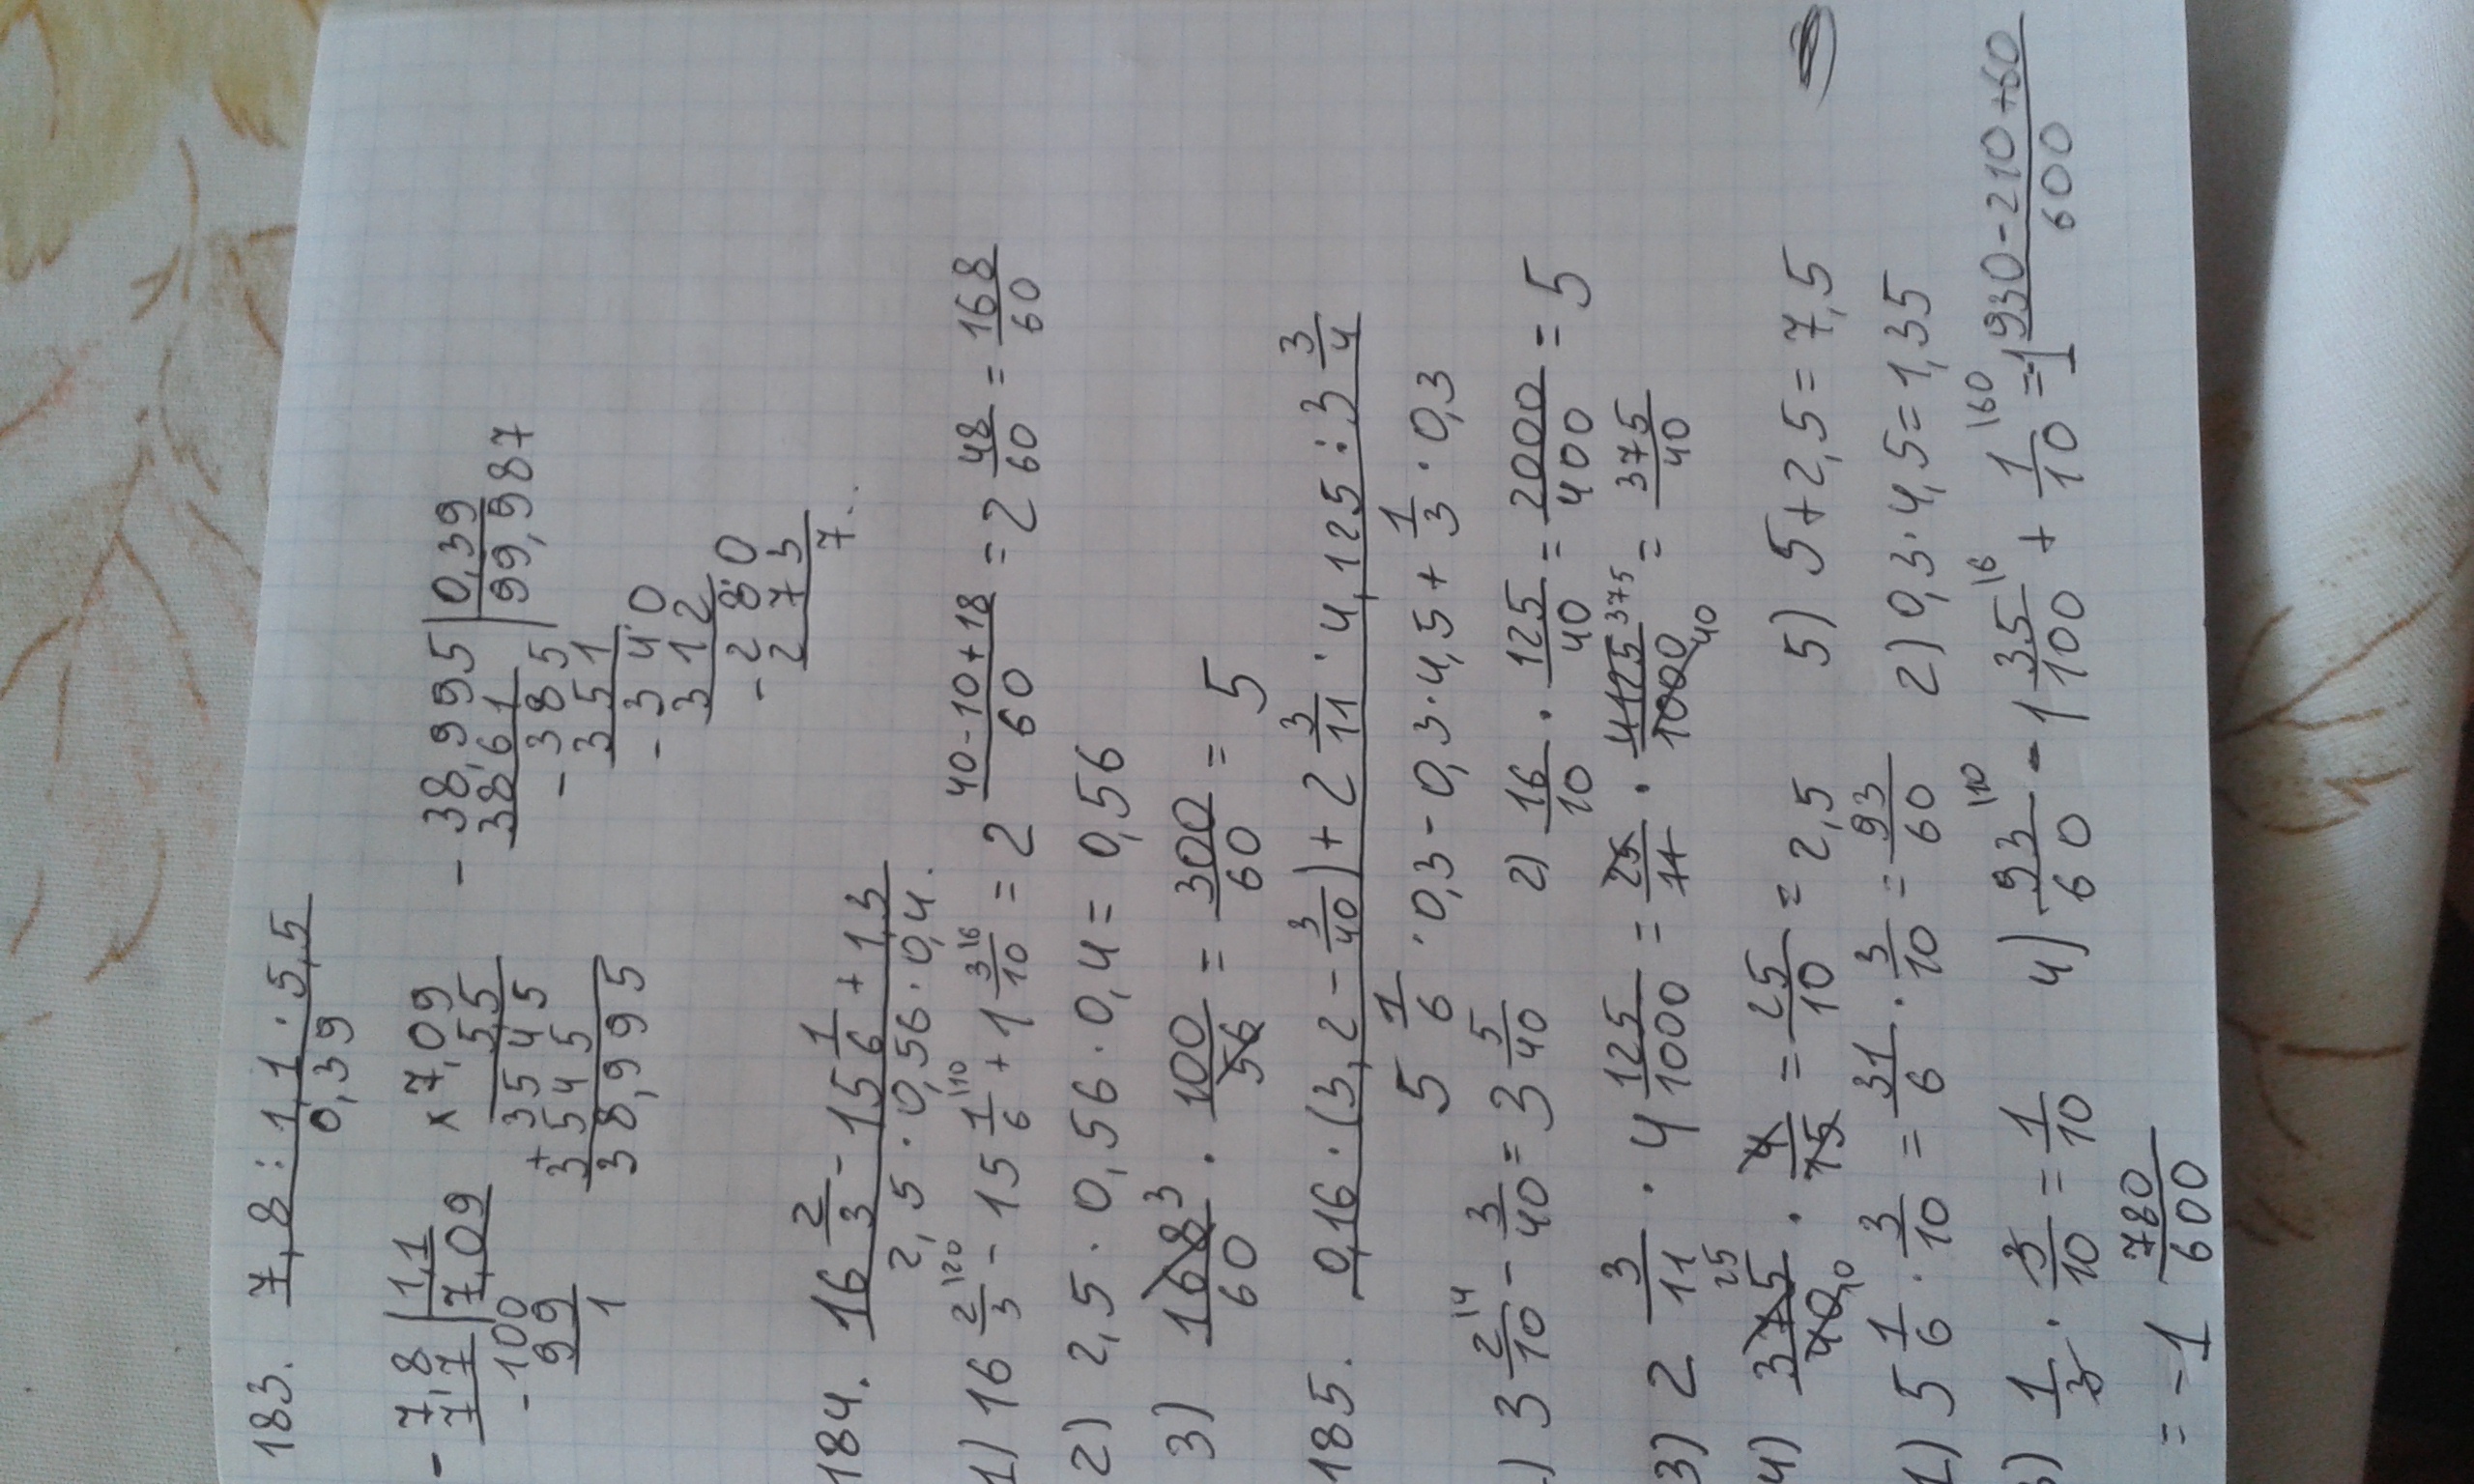 183. 7,8 : 1,1 · 5,5 / 0,39
- 7,8 | 1,1
7,7 | 7,09
- 100
99
1
× 7,09
5,5
+ 3545
3545
38,995
- 38,995 | 0,39
3861 | 99,987
- 385
351
- 340
312
- 280
273
7.
184. 16 2/3 - 15 1/6 + 1,3 / 2,5 · 0,56 · 0,4.
1) 16 2/3 |20 - 15 1/6 |10 + 1 3/10 |6 = 2 40-10+18/60 = 2 48/60 = 168/60
2) 2,5 · 0,56 · 0,4 = 0,56
3) 168/60 3 · 100/56 = 300/60 = 5
185. 0,16 · (3,2 - 3/40) + 2 3/11 · 4,125 : 3 3/4
5 1/6 · 0,3 - 0,3 · 4,5 + 1/3 · 0,3
1) 3 2/10 |4 - 3/40 = 3 5/40 2) 16/10 · 125/40 = 2000/400 = 5
3) 2 3/11 · 4 125/1000 = 25/11 · 4125/1000 375/40 = 375/40
4) 375/40 25/10 · 4/15 = 25/10 = 2,5 5) 5 + 2,5 = 7,5
1) 5 1/6 · 3/10 = 31/6 · 3/10 = 93/60 2) 0,3 · 4,5 = 1,35
3) 1/3 · 3/10 = 1/10 4) 93/60 |10 - 1 35/100 |6 + 1/10 |60 = -1 930-210+60/600
= -1 780/600